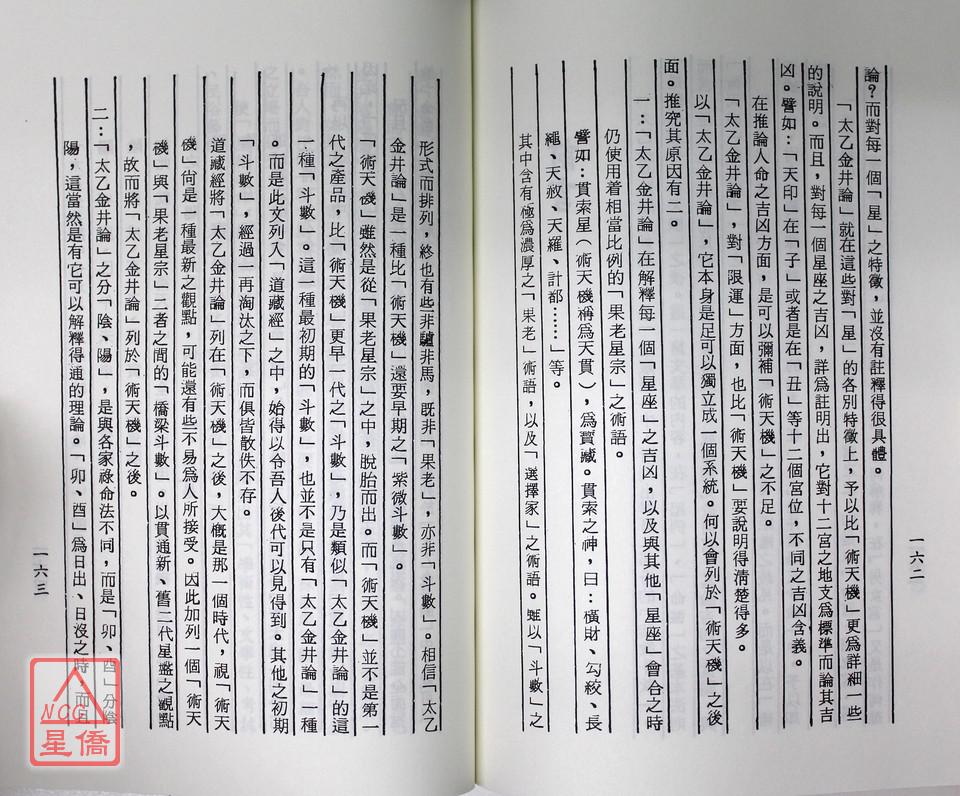 論？而對每一個「星」之特徵，並沒有註釋得很具體。
「太乙金井論」就在這些對「星」的各別特徵上，予以比「術天機」更爲詳細一些
的說明。而且，對每一個星座之吉凶，詳爲註明出，它對十二宮之地支爲標準而論其吉
凶。譬如：「天印」在「子」或者是在「丑」等十二個宮位，不同之吉凶含義。
在推論人命之吉凶方面，是可以彌補「術天機」之不足。
「太乙金井論」，對「限運」方面，也比「術天機」要說明得清楚得多。
以「太乙金井論」，它本身是足可以獨立成一個系統。何以會列於「術天機」之後
面。推究其原因有二。
一：「太乙金井論」在解釋每一個「星座」之吉凶，以及與其他「星座」會合之時
仍使用着相當比例的「果老星宗」之術語。
譬如：貫索星（術天機稱爲天貫），爲賈藏。貫索之神，曰：橫財、勾絞、長
繩、天赦、天羅、計都……」等。
其中含有極爲濃厚之「果老」術語，以及「選擇家」之術語。雖以「斗數」之
一六二
形式而排列，終也有些非驢非馬，既非「果老」，亦非「斗數」。相信「太乙
金井論」是一種比「術天機」還要早期之「紫微斗數」。
「術天機」雖然是從「果老星宗」之中，脫胎而出。而「術天機」並不是第一
代之產品，比「術天機」更早一代之「斗數」，乃是類似「太乙金井論」的這
一種「斗數」。這一種最初期的「斗數」，也並不是只有「太乙金井論」一種
。而是此文列入「道藏經」之中，始得以令吾人後代可以見得到。其他之初期
「斗數」，經過一再淘汰之下，而俱皆散佚不存。
道藏經將「太乙金井論」列在「術天機」之後，大概是那一個時代，視「術天
機」尙是一種最新之觀點，可能還有些不易爲人所接受。因此加列一個「術天
機」與「果老星宗」二者之間的「橋梁斗數」。以貫通新、舊二代星盤之觀點
，故而將「太乙金井論」列於「術天機」之後。
二：「太乙金井論」之分「陰、陽」，是與各家祿命法不同，而是「卯、酉」分陰
陽，這當然是有它可以解釋得通的理論。「卯、酉」爲日出、日沒之時，而且
一六三
NCC
星僑